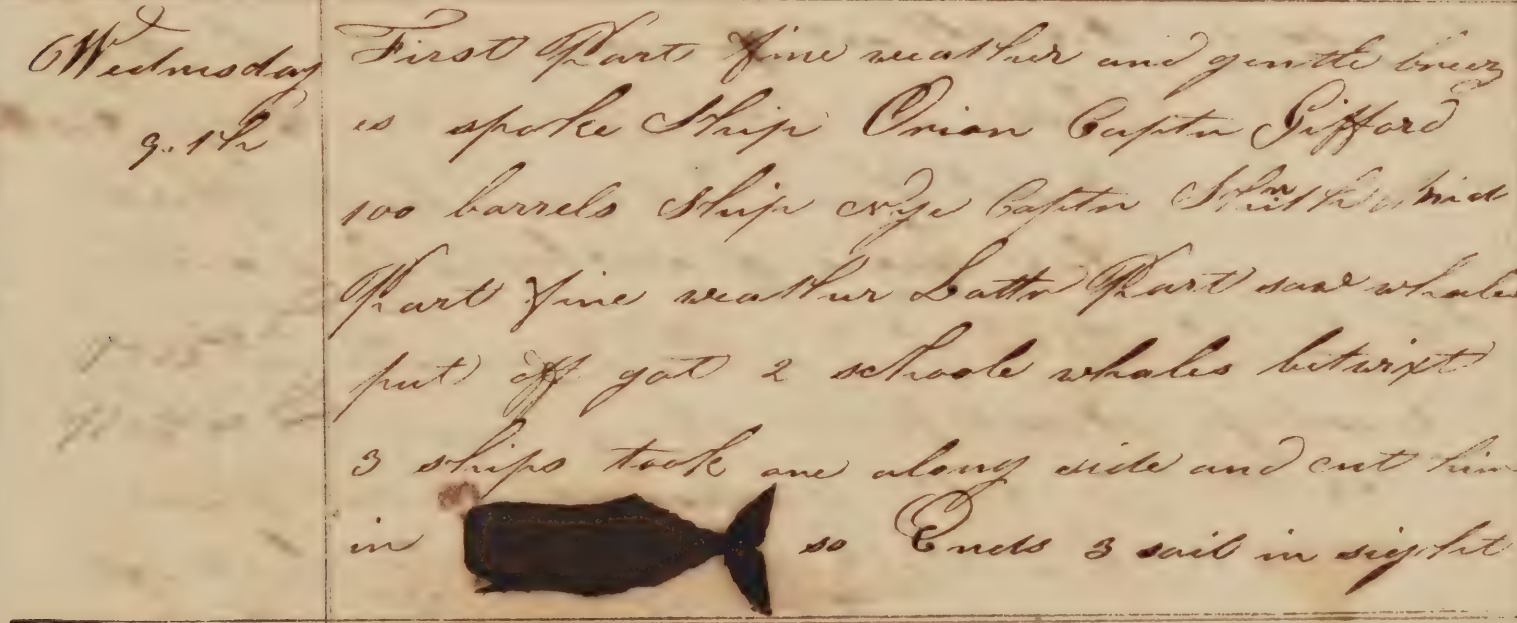 Wednesday
9.th
First Part fine weather and gentle breez
es spoke Ship Orion Captn Gifford
100 barrels Ship Nye Captn Smith mid
Part fine weather Lattr Part saw whales
put off got 2 schoole whales betwixt
3 ships took one along side and cut him
in
so Ends 3 sail in sight